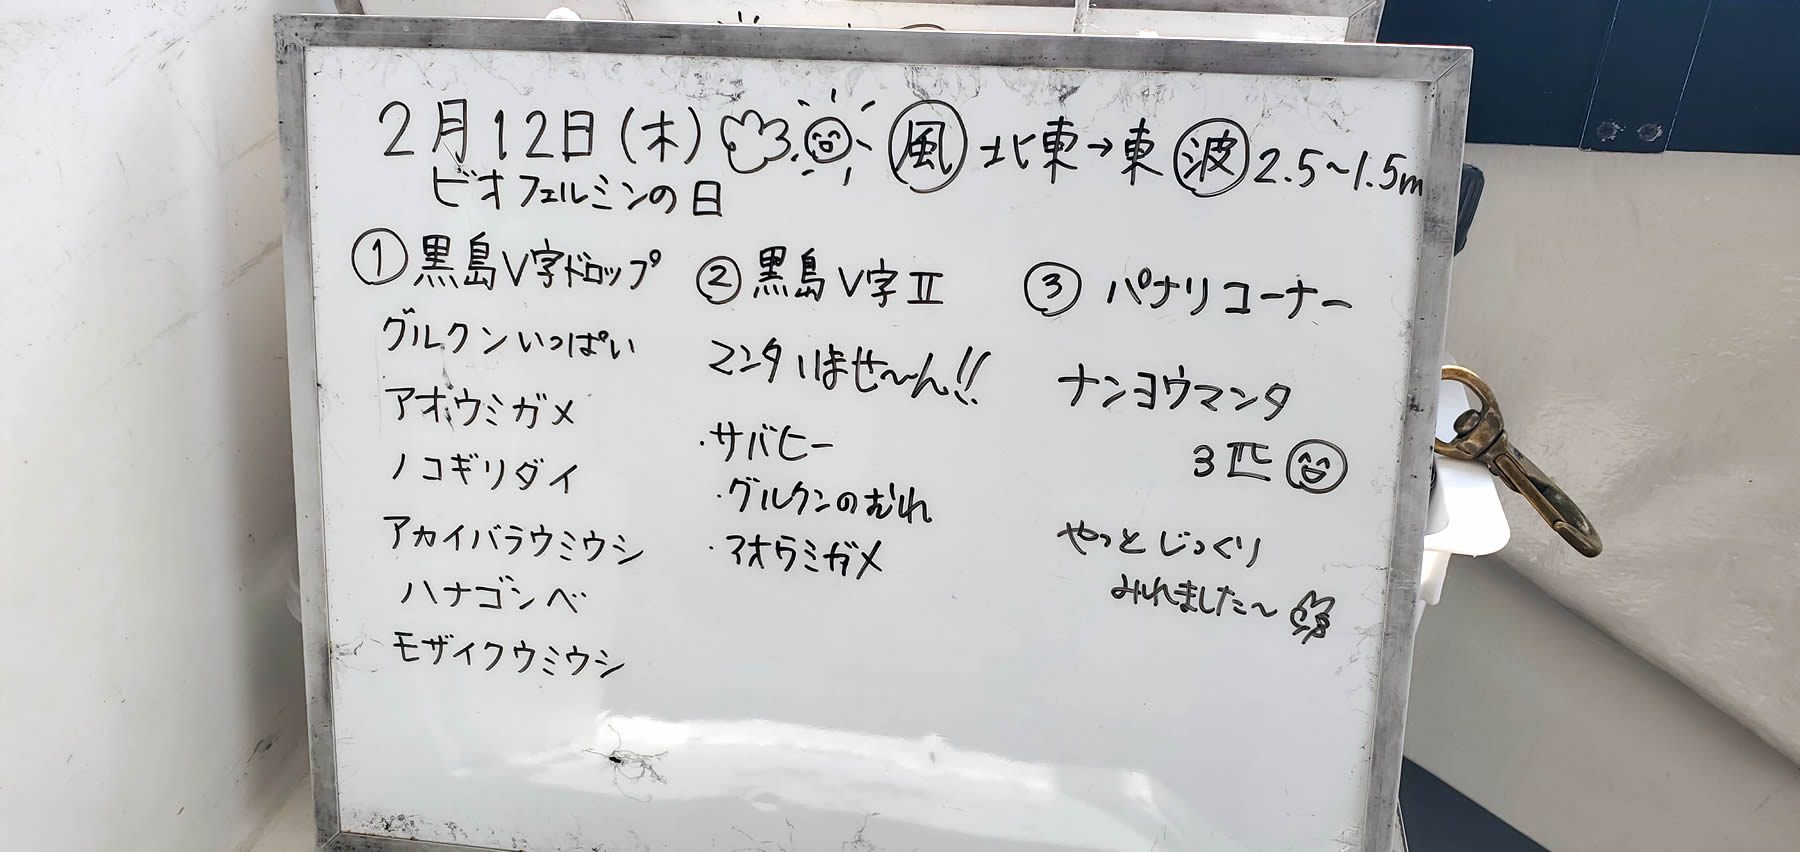 2月12日(木) 風 北東→東 波 2.5~1.5m
ビオフェルミンの日
① 黒島V字ドロップ
グルクンいっぱい
アオウミガメ
ノコギリダイ
アカイバラウミウシ
ハナゴンベ
モザイクウミウシ
② 黒島V字Ⅱ
マンタいませ〜ん!!
・サバヒー
・グルクンのむれ
・アオウミガメ
③ パナリコーナー
ナンヨウマンタ
3匹
やっとじっくり
みれました〜